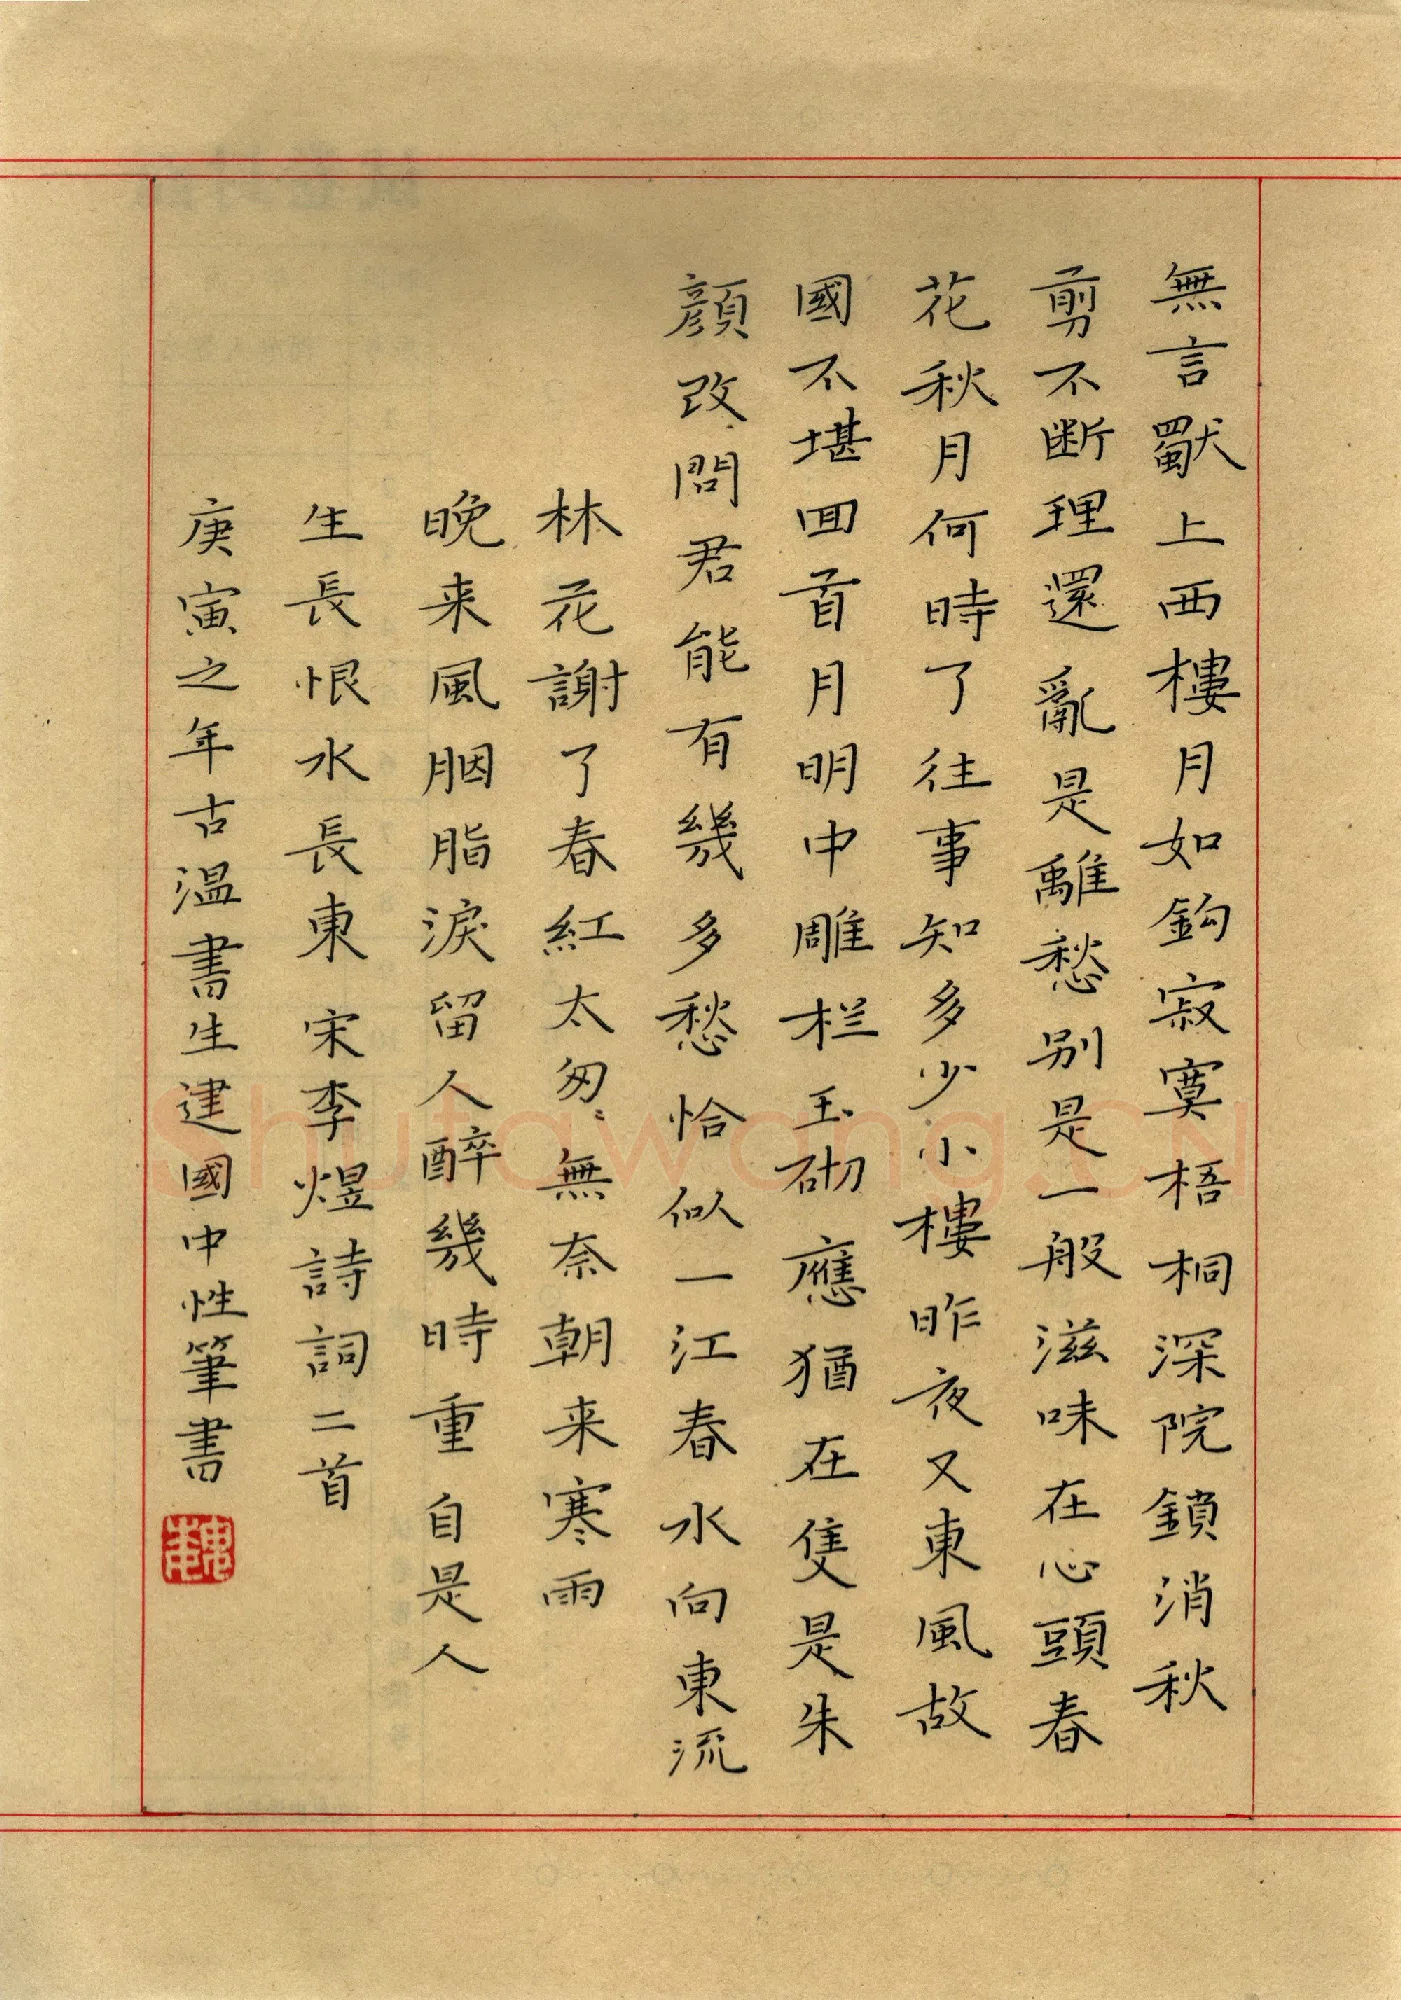 無言獨上西樓月如鈎寂寞梧桐深院鎖消秋
剪不断理還亂是離愁别是一般滋味在心頭春
花秋月何時了往事知多少小樓昨夜又東風故
國不堪回首月明中雕栏玉砌應猶在隻是朱
顔改問君能有幾多愁恰似一江春水向東流
林花謝了春紅太匆匆無奈朝来寒雨
晚来風胭脂淚留人醉幾時重自是人
生長恨水長東宋李煜詩詞二首
庚寅之年古温書生建國中性筆書
Shufawang.CN